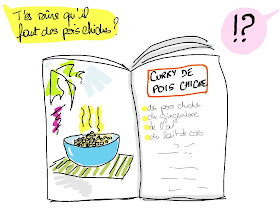 T'es sûre qu'il
faut des pois chiches?
!?
CURRY DE
POIS CHICHE
de pois chiche
de gingembre
de l'ail
du lait de coco